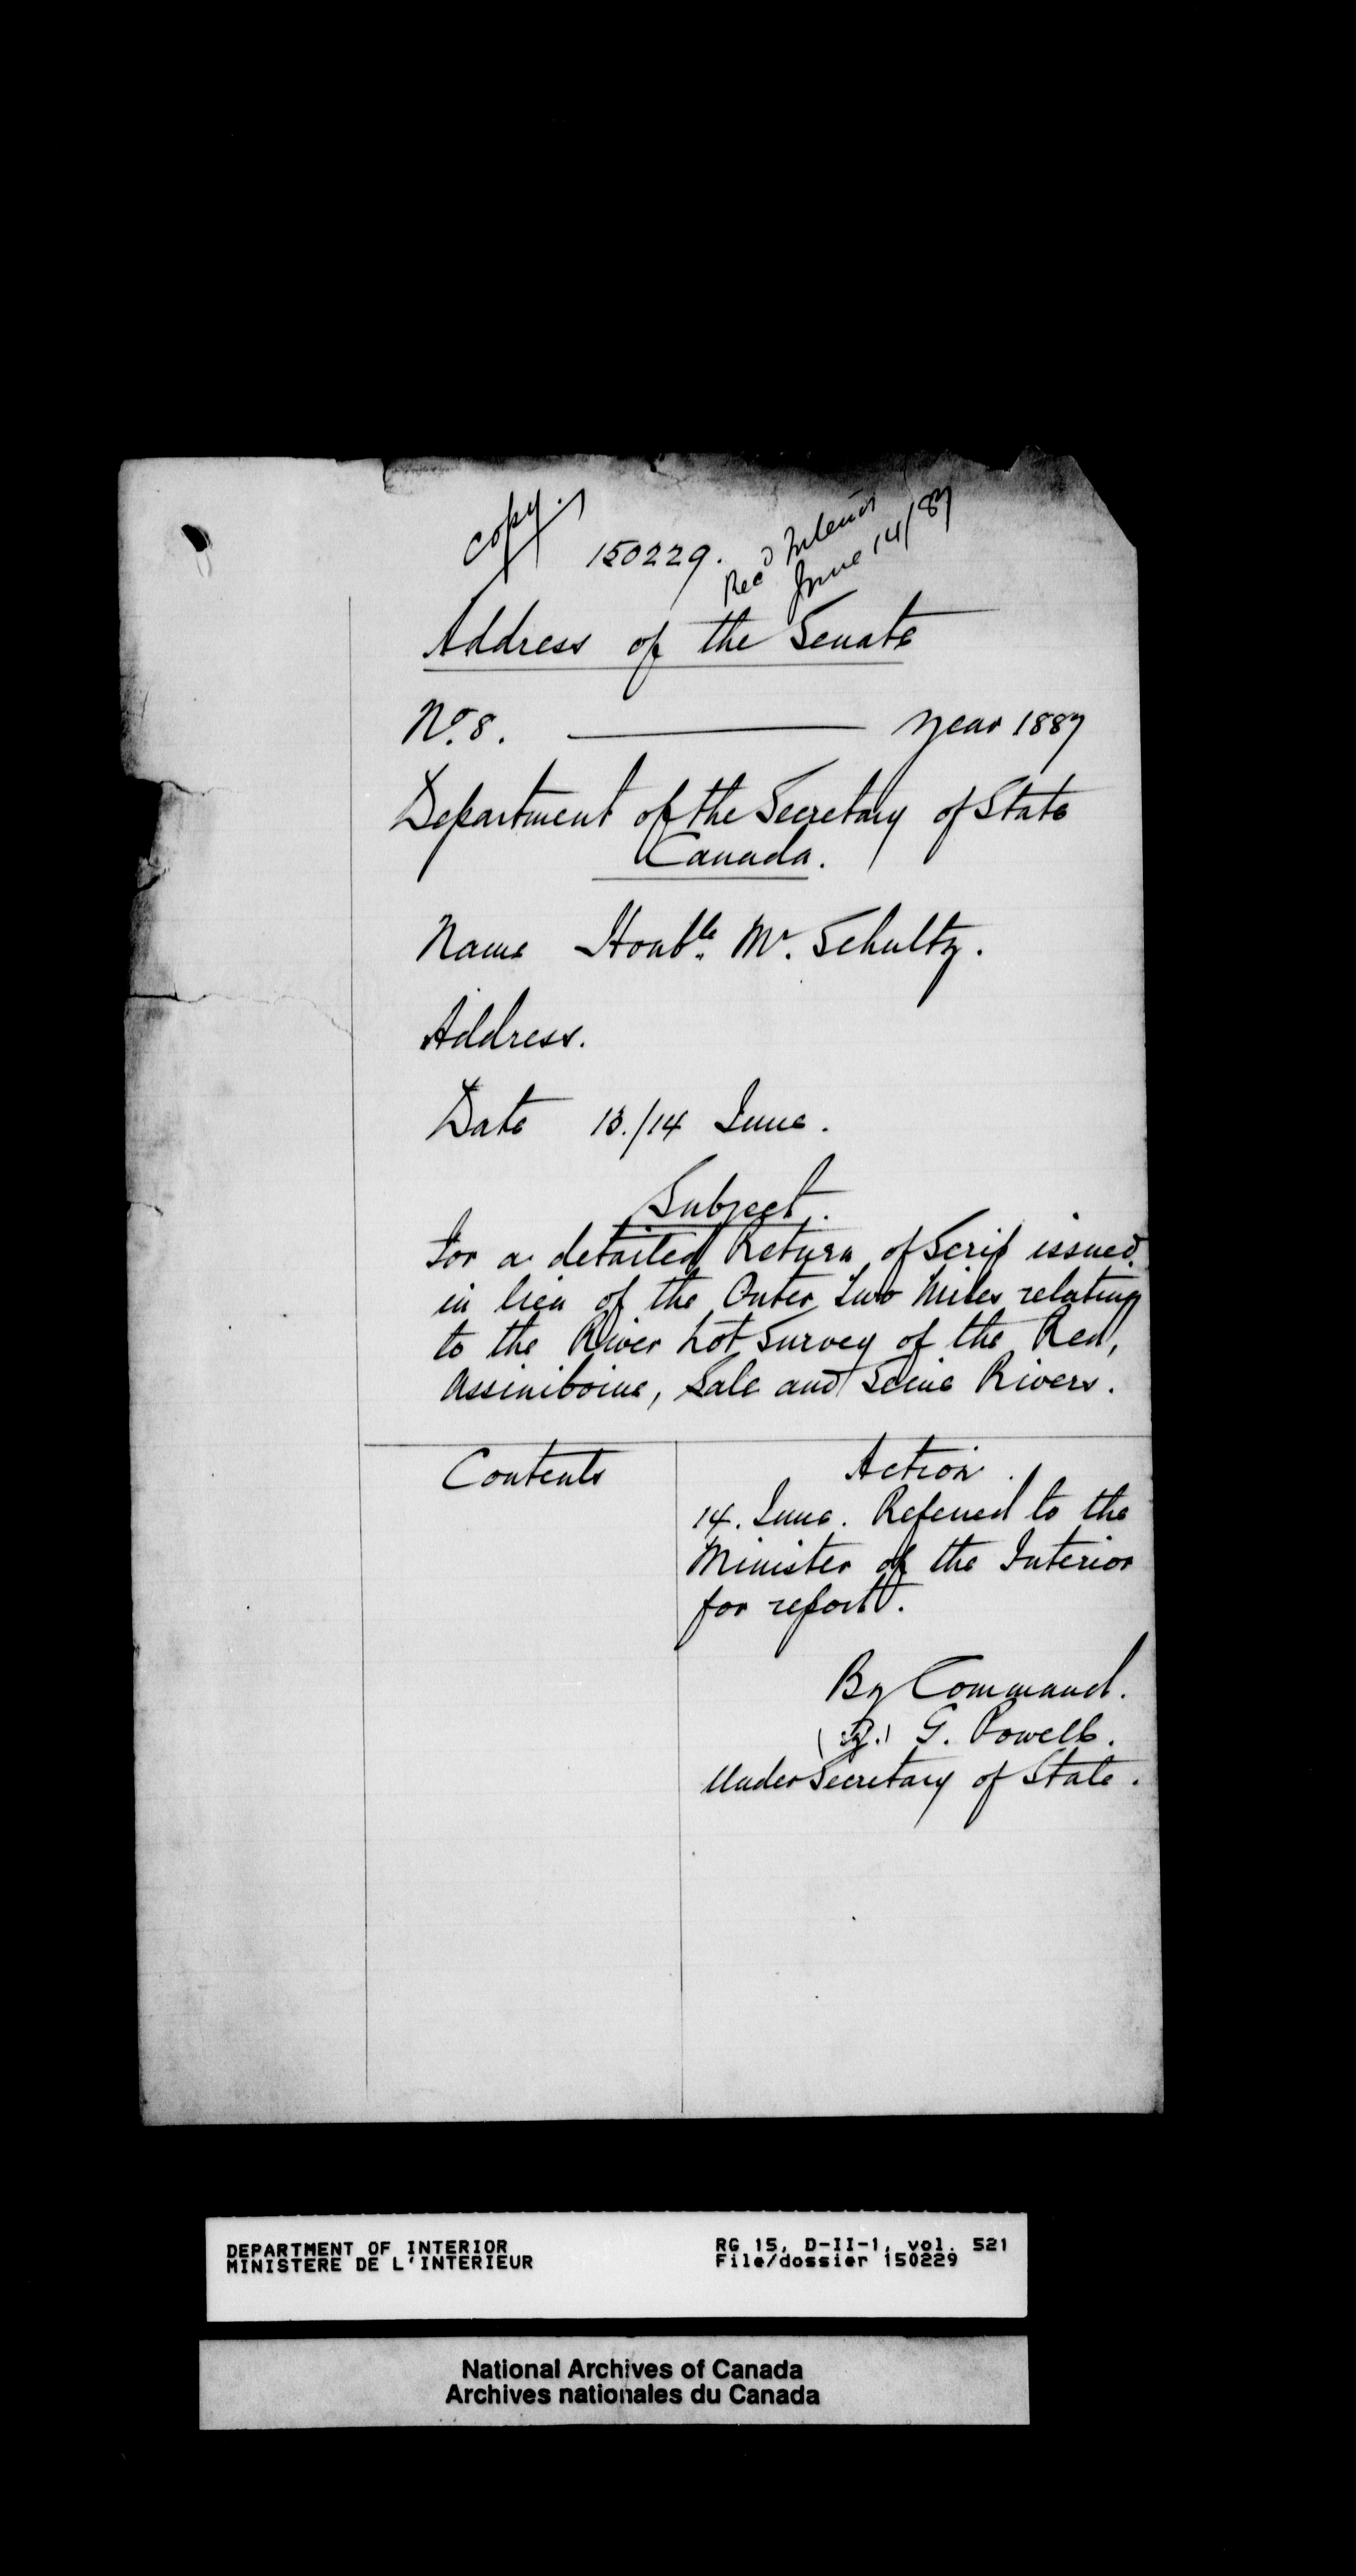 Copy.
150229.
Recd Interior
June 14/87
Address of the Senate
No. 8. Year 1887
Department of the Secretary of State
Canada.
Name Honble. Mr. Schultz.
Address.
Date 13./14 June.
Subject.
For a detailed Return of Scrip issued
in lieu of the Outer Two Miles relating
to the River Lot Survey of the Red,
Assiniboine, Sale and Seine Rivers.
Contents
Action.
14. June. Referred to the
Minister of the Interior
for report.
By Command.
G. Powell.
Under Secretary of State.
DEPARTMENT OF INTERIOR
MINISTERE DE L'INTERIEUR
RG 15, D-II-1, vol. 521
File/dossier 150229
National Archives of Canada
Archives nationales du Canada